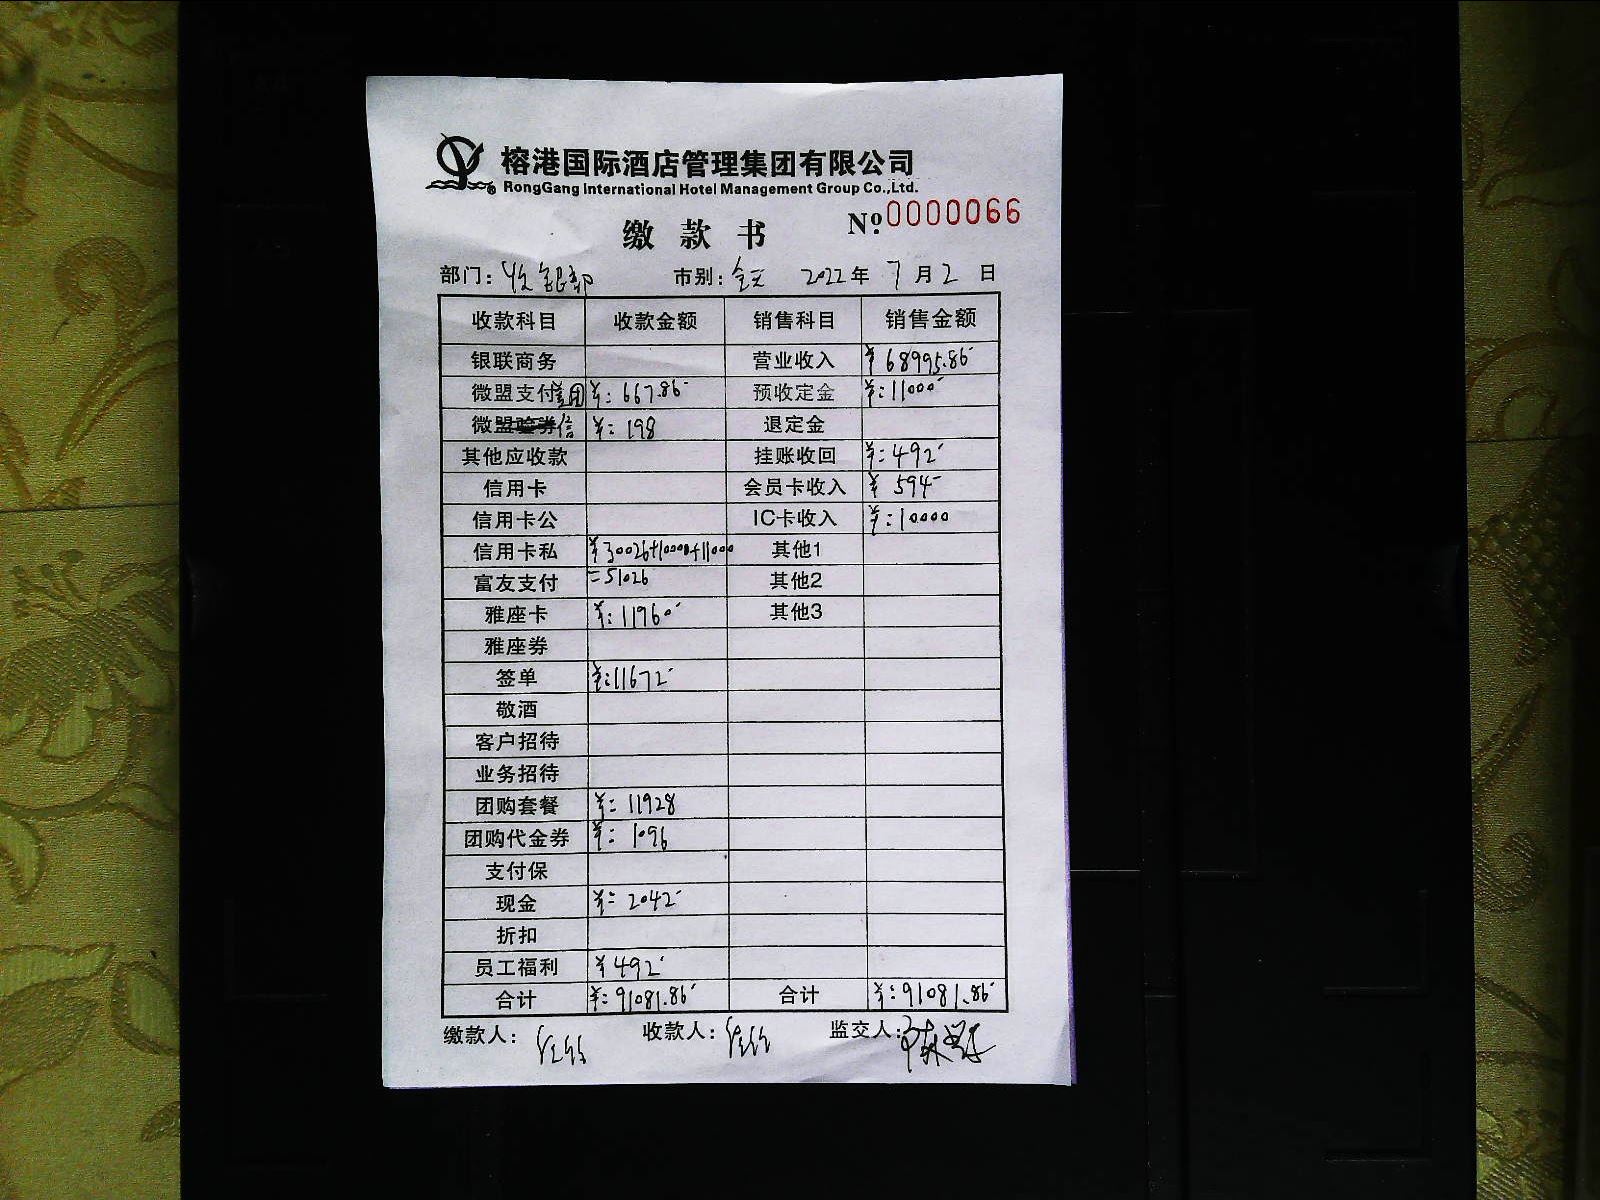 榕港国际酒店管理集团有限公司
RongGang International Hotel Management Group Co.,Ltd.
缴款书 №0000066
部门：收银部 市别：全天 2022年7月2日
收款科目 收款金额 销售科目 销售金额
银联商务 营业收入 ¥68995.86
微盟支付美团 ¥:667.86 预收定金 ¥:11000
微盟验券信 ¥:198 退定金
其他应收款 挂账收回 ¥:492
信用卡 会员卡收入 ¥594
信用卡公 IC卡收入 ¥:10000
信用卡私 ¥30026+10000+11000 其他1
富友支付 =51026 其他2
雅座卡 ¥:11960 其他3
雅座券
签单 ¥:11672
敬酒
客户招待
业务招待
团购套餐 ¥:11928
团购代金券 ¥:1096
支付保
现金 ¥:2042
折扣
员工福利 ¥492
合计 ¥:91081.86 合计 ¥:91081.86
缴款人： 收款人： 监交人：